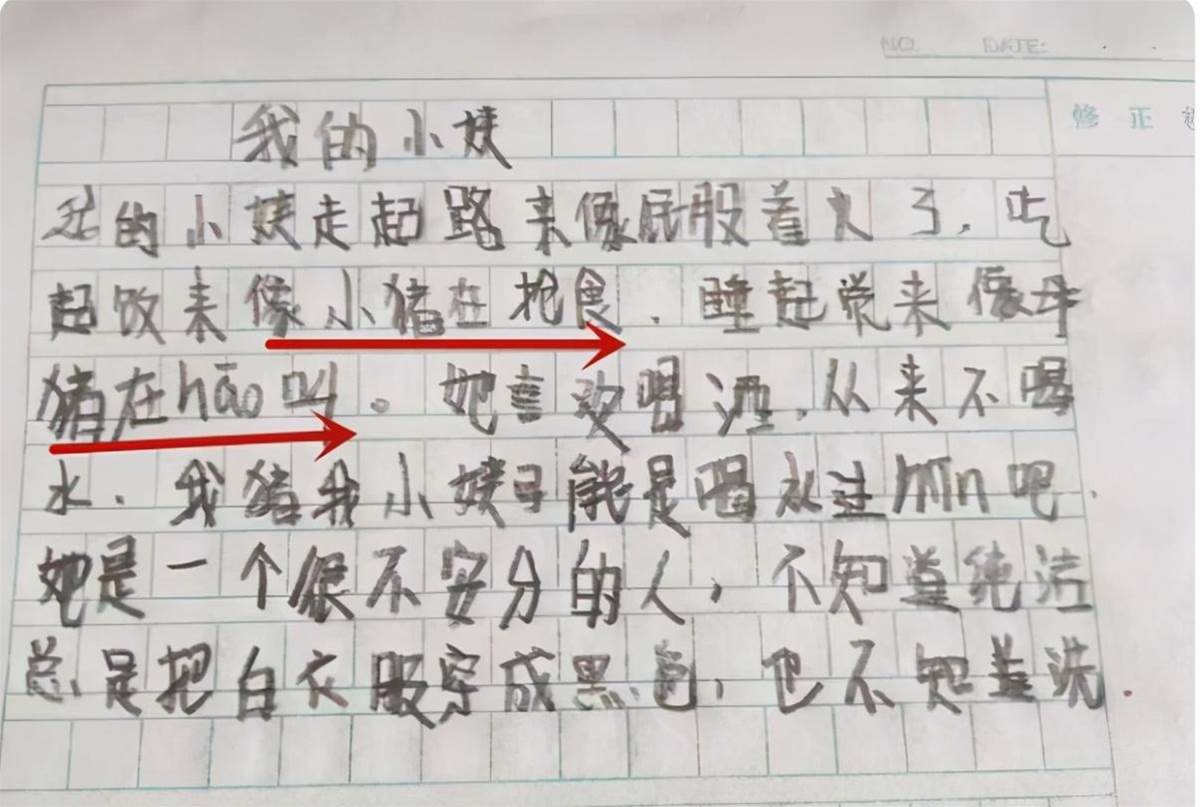 NO. DATE:
修 正
我的小姨
我的小姨走起路来像屁股着火了，吃
起饭来像小猪在抢食．睡起觉来像母
猪在hāo叫。她喜欢喝酒．从来不喝
水．我猪我小姨可能是喝水过mǐn吧．
她是一个很不安分的人，不知道纯洁
总是把白衣服穿成黑色，也不知道洗．